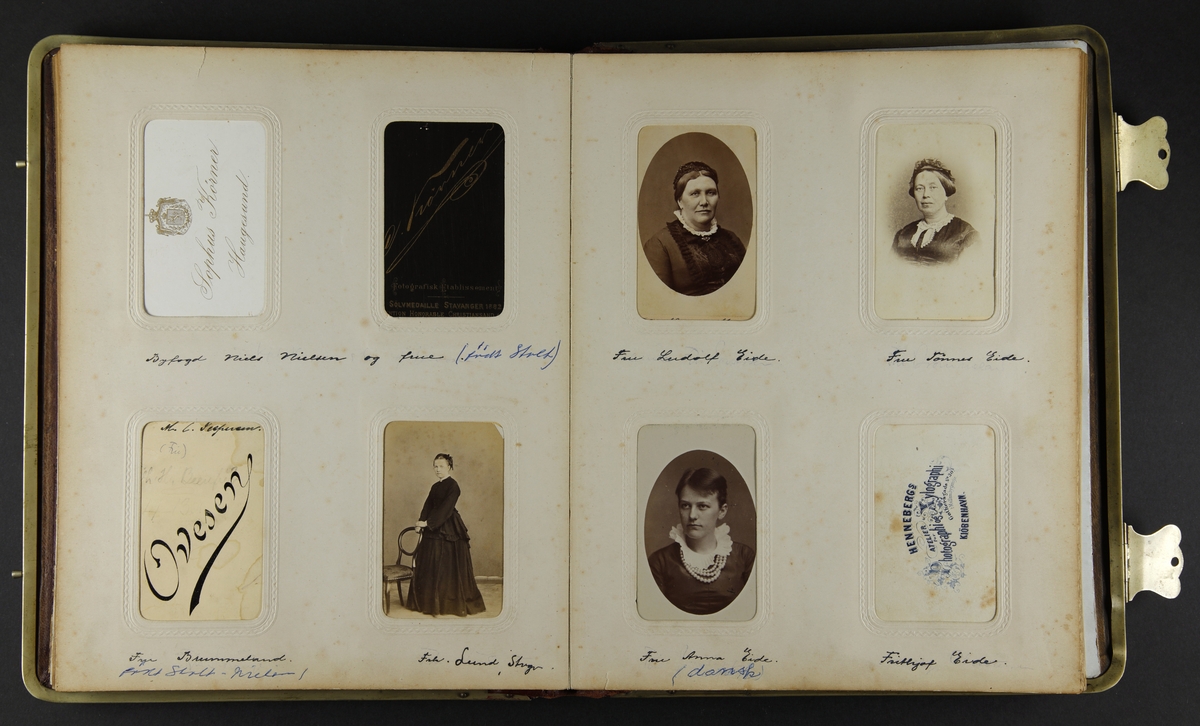 Sophus Körner
Haugesund.
S. Körner
Fotografisk Etablissement
SØLVMEDAILLE STAVANGER
Byfogd Niels Nielsen og frue (født Stolt)
Fru Ludolf Eide.
Fru Tönnes Eide.
M. C. Jespersen.
(Fru)
Ovesen
HENNEBERGS
ATELIER
KIÖBENHAVN.
Brummeland.
født Stolt-Nielsen)
Frk. Lund, Stvgr.
Fru Anna Eide.
(dansk)
Frithjof Eide.